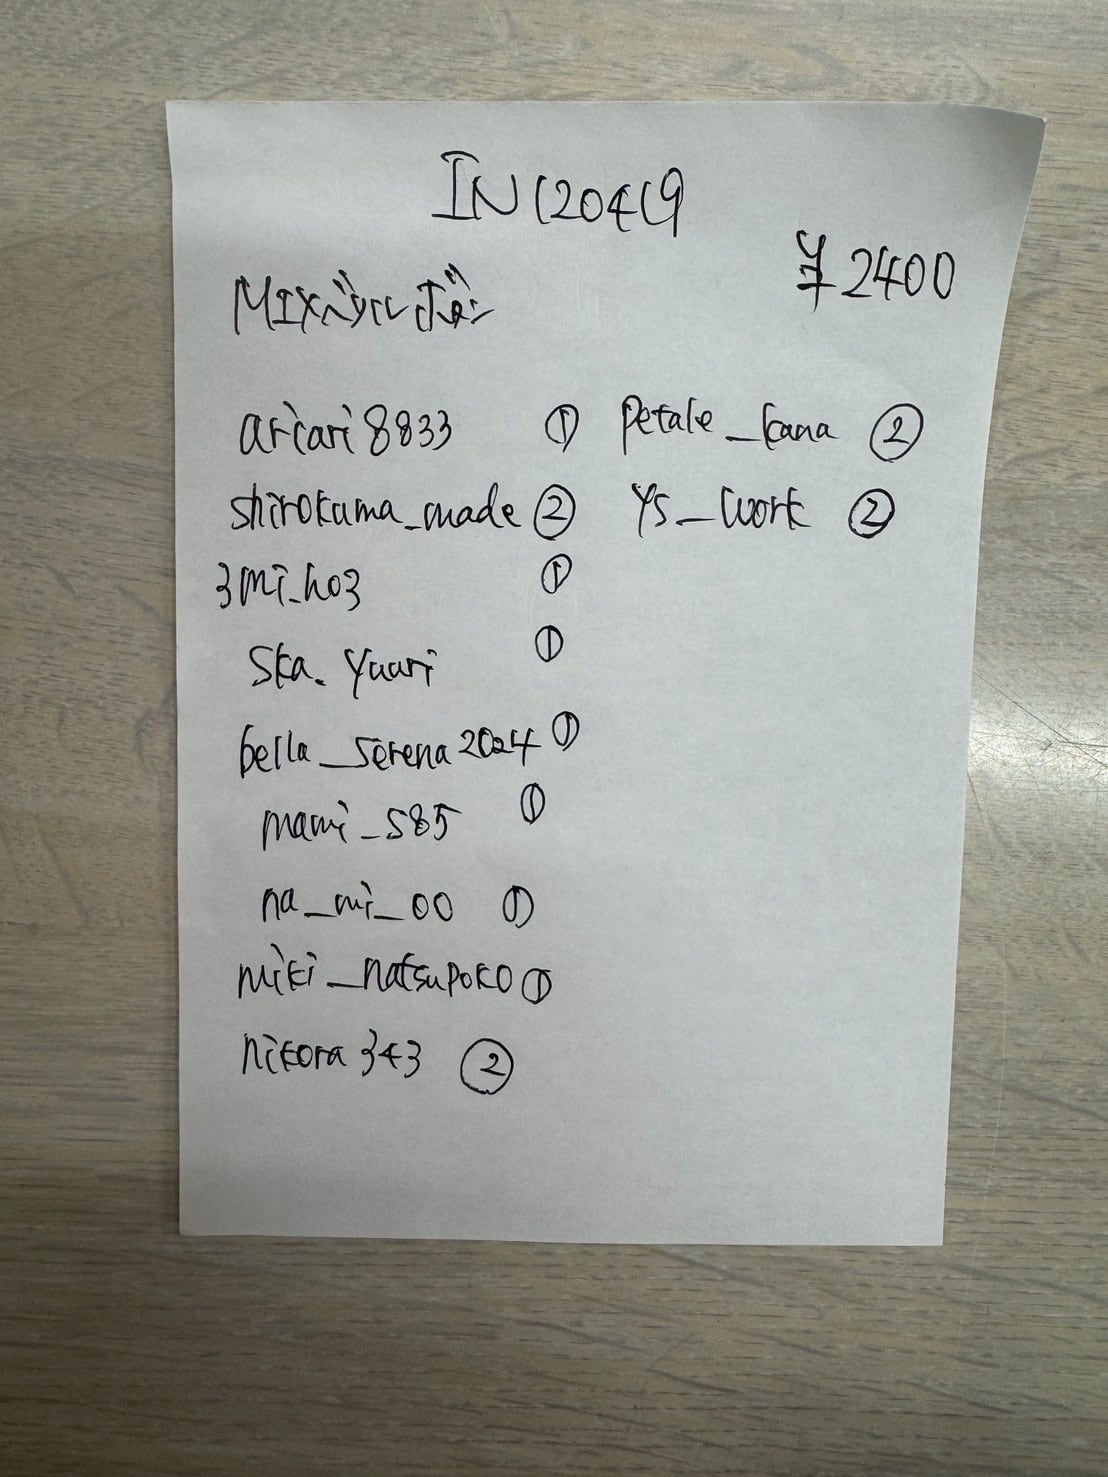 IN120419
¥2400
MIXパールボタン
aricari8833 ①
shirokuma_made ②
3mi_ho3 ①
ska.yuuri ①
bella_serena2024 ①
mami_s85 ①
na_mi_00 ①
miki_natsupoko ①
nikora343 ②
petale_kana ②
ys_work ②